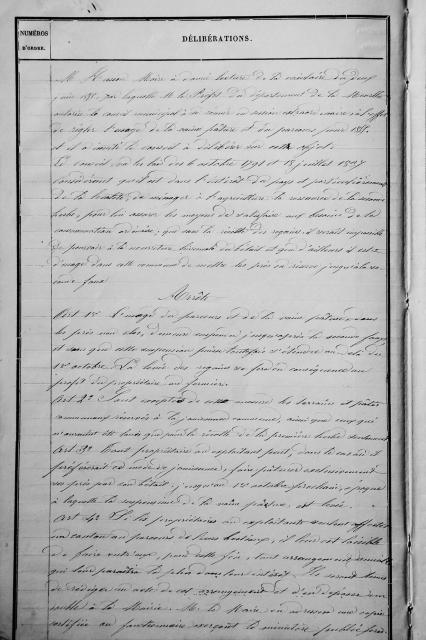 NUMÉROS
D'ORDRE.
DÉLIBÉRATIONS.
M. Maire a donné lecture de la circulaire du deux
par laquelle M. le Préfet du département de la Meurthe
autorise le conseil municipal à se réunir en session extraordinaire à l'effet
de régler l'usage de la vaine pâture et du parcours pour
et il a invité le conseil à délibérer sur cet objet.
Le conseil, vu les lois des 6 octobre 1791 et 18 juillet 1837
Considérant qu'il est dans l'intérêt du pays et particulièrement
de la localité, de ménager à l'agriculture la ressource de la seconde
herbe, pour lui assurer les moyens de satisfaire aux besoins de la
consommation ordinaire, que sans la récolte des regains, il serait impossible
de pourvoir à la nourriture hivernale du bétail et que d'ailleurs il est
d'usage dans cette commune de mettre les prés en réserve jusqu'à la
faux
Arrête
Art. 1er L'usage du parcours et de la vaine pâture, dans
les prés non clos, demeure suspendu jusqu'après la seconde faux,
et sans que cette suspension puisse toutefois s'étendre au delà du
1er octobre. La levée des regains se fera en conséquence au
profit du propriétaire ou fermier.
Art. 2e Sont exceptés de cette mesure les terrains et pâtis
communaux réservés à la jouissance commune, ainsi que ceux qui
n'auraient été loués que pour la récolte de la première herbe seulement
Art. 3e Tout propriétaire ou exploitant peut, dans le cas où il
préférerait ce mode de jouissance, faire pâturer exclusivement
ses prés par son bétail, jusqu'au 1er octobre prochain, époque
à laquelle la suspension de la vaine pâture, est levée.
Art. 4e Si les propriétaires ou exploitants veulent affecter
un canton au parcours de leurs bestiaux, il leur est loisible
de faire entr'eux, pour cette fin, tout arrangement amiable
qui leur paraîtra le plus dans leur intérêt. Ils seront tenus
de rédiger un acte de cet arrangement et d'en déposer un
double à la Mairie. M. le Maire en adressera une copie
certifiée au fonctionnaire exerçant le ministère public près